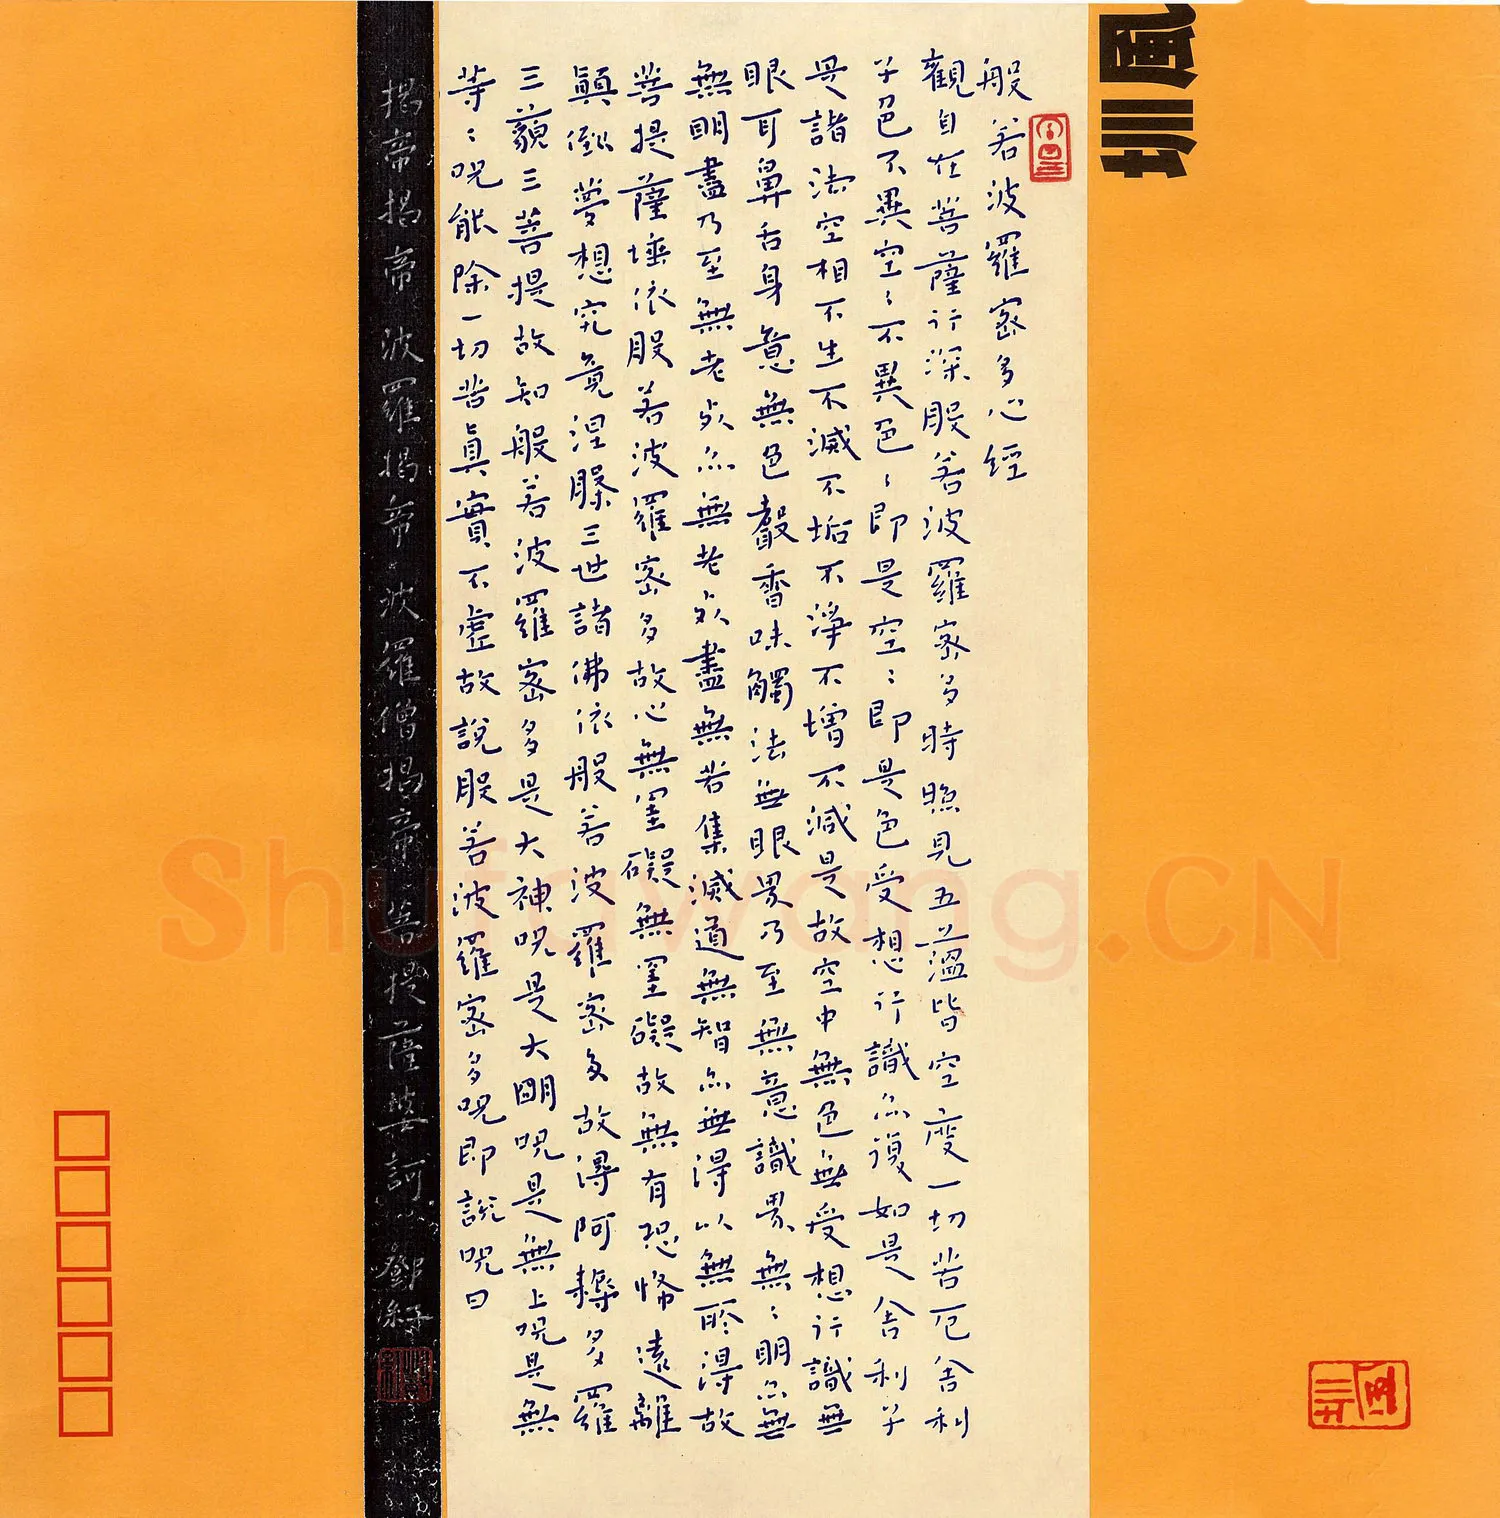 風圳
般若波羅密多心經
觀自在菩薩行深般若波羅密多時照見五蘊皆空度一切苦厄舍利
子色不異空〻不異色〻即是空〻即是色受想行識亦復如是舍利子
是諸法空相不生不滅不垢不淨不增不減是故空中無色無受想行識無
眼耳鼻舌身意無色聲香味觸法無眼界乃至無意識界無〻明亦無
無明盡乃至無老死亦無老死盡無苦集滅道無智亦無得以無所得故
菩提薩埵依般若波羅密多故心無罣礙無罣礙故無有恐怖遠離
顛倒夢想究竟涅槃三世諸佛依般若波羅密多故得阿耨多羅
三藐三菩提故知般若波羅密多是大神呪是大明呪是無上呪是無
等〻呪能除一切苦眞實不虛故說般若波羅密多呪即說呪曰
揭帝揭帝 波羅揭帝 波羅僧揭帝 菩提薩婆訶 鄧
Shufawang.CN